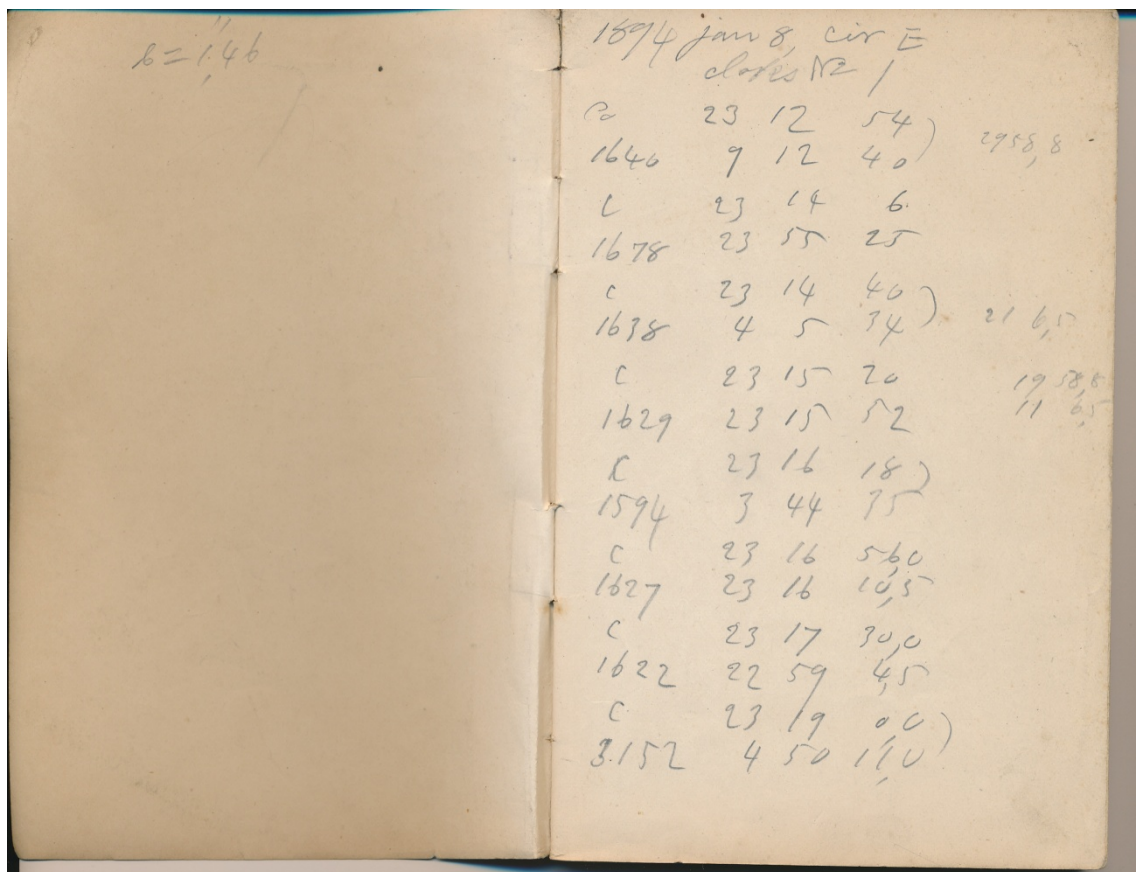 b = 1,46
1894 jan 8, cir E
No 1
23 12 54
1640 9 12 40 2958,8
C 23 14 6
1678 23 55 25
C 23 14 40
1638 4 5 34 21 6,5
C 23 15 20 19 58,8
1629 23 15 52 11 6,5
C 23 16 18
1594 3 44 35
C 23 16 56,0
1627 23 16 10,5
C 23 17 30,0
1622 22 59 4,5
C 23 19 0,0
3.152 4 50 11,0